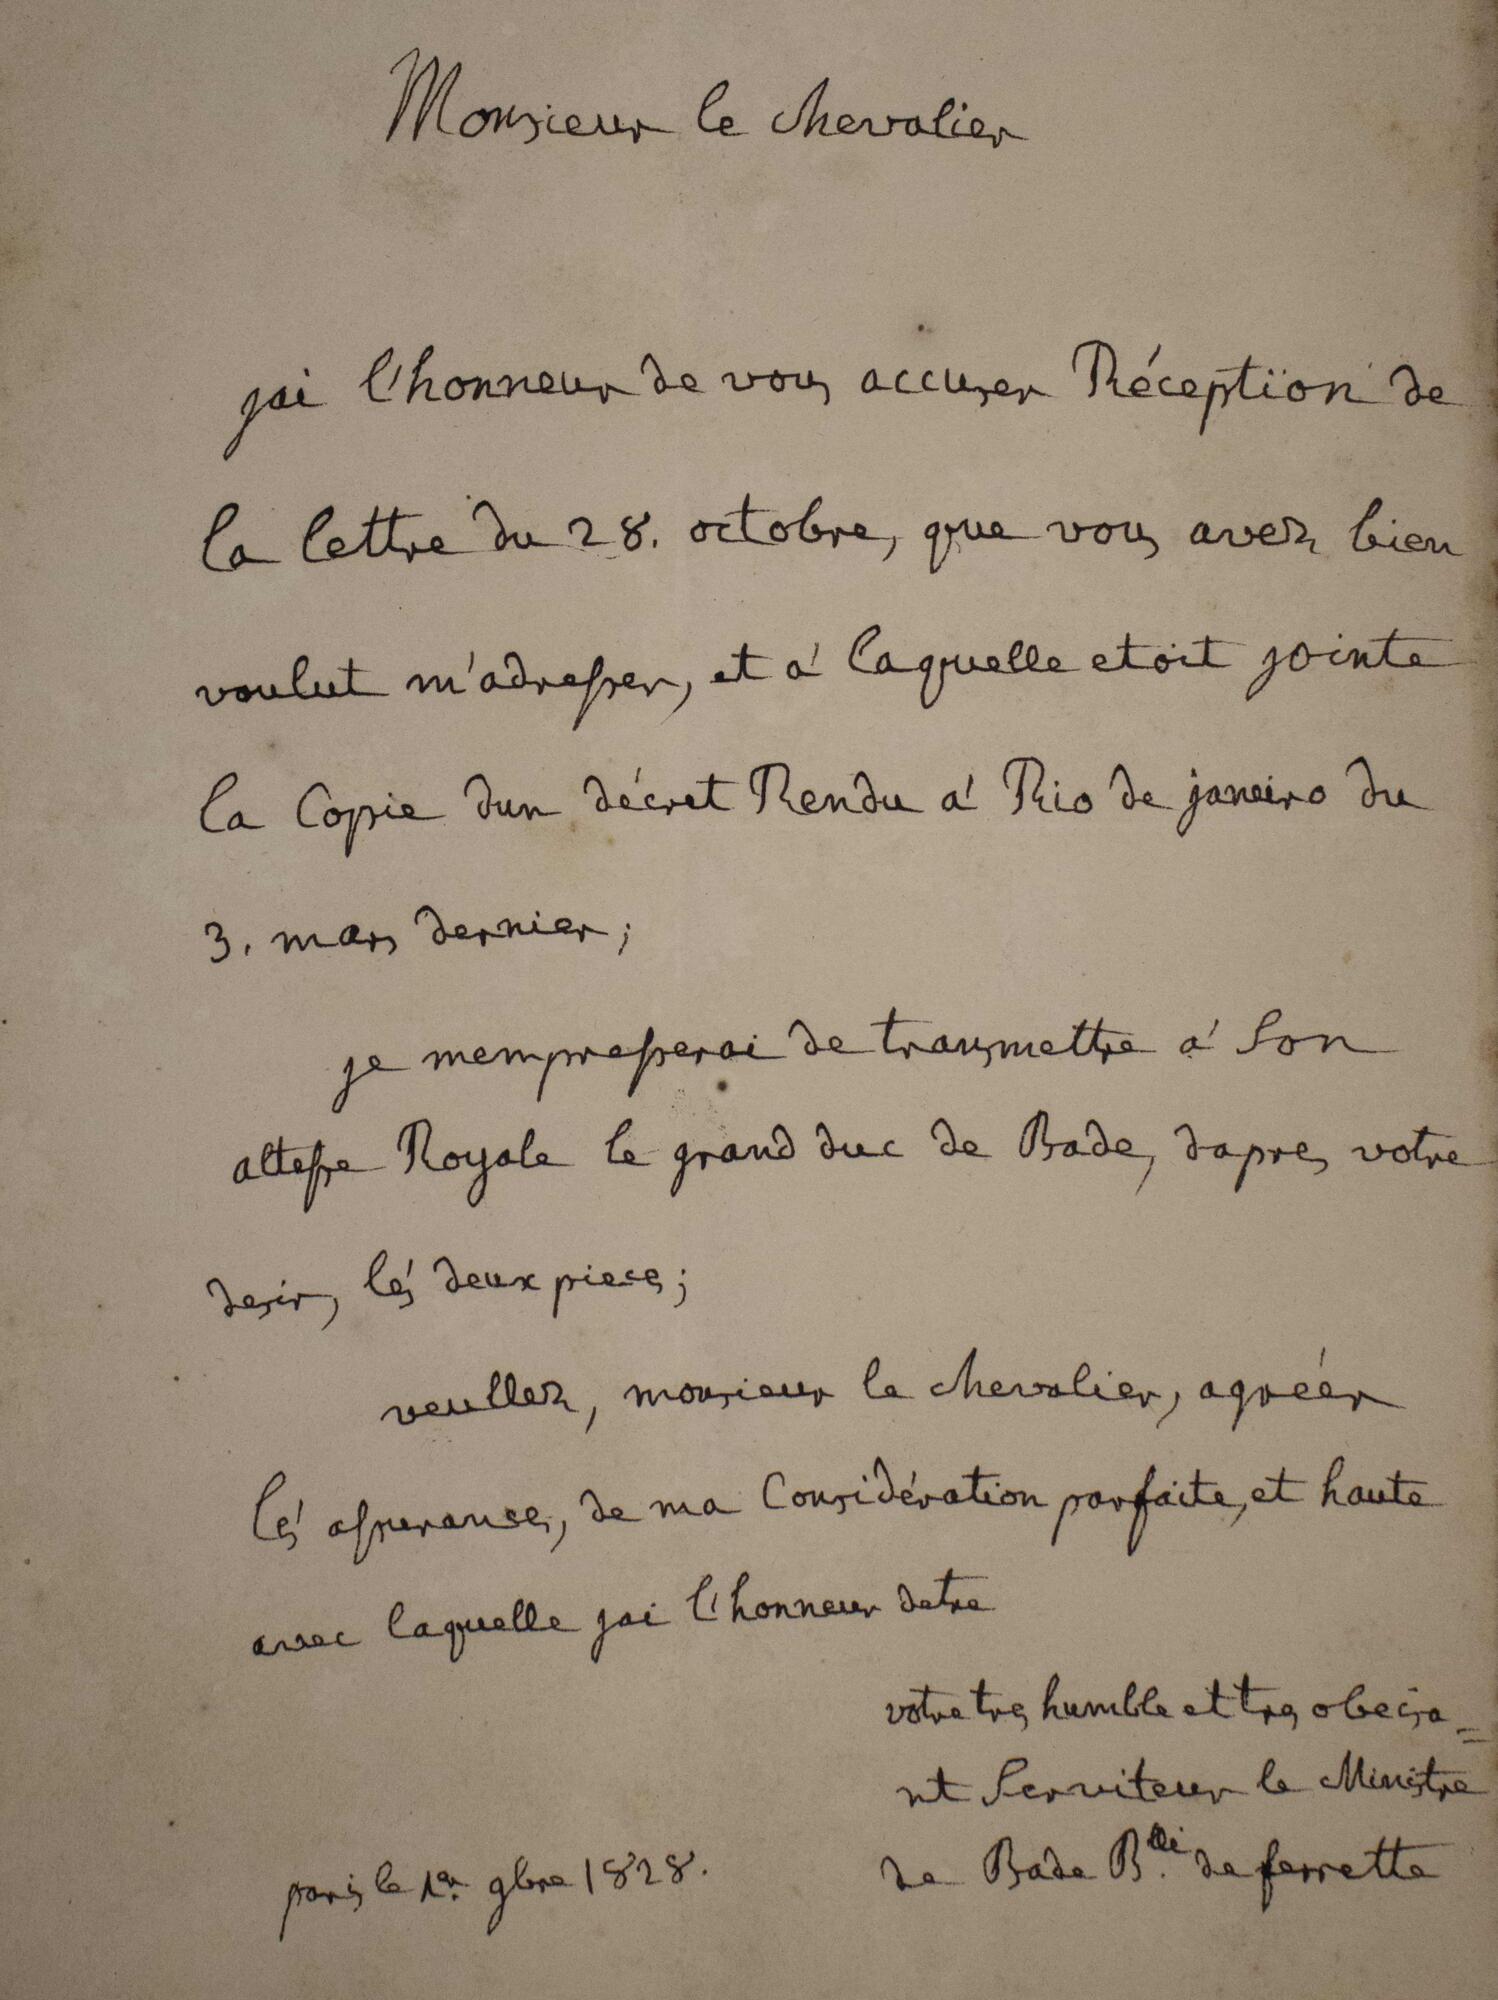 Monsieur le chevalier
jai l'honneur de vous accuser Réception de
la lettre du 28. octobre, que vous avez bien
voulut m'adresser, et à laquelle etoit jointe
la Copie dun décret Rendu à Rio de janeiro du
3. mars dernier;
je mempresserai de transmettre à Son
altesse Royale le grand duc de Bade, dapres votre
desir, lés deux pieces;
veullez, monsieur le chevalier, agréér
lés assurances, de ma Considération parfaite, et haute
avec laquelle jai l'honneur detre
votre tres humble et tres obeisa=
nt Serviteur le Ministre
de Bade B.lli de ferrette
paris le 1er. 9bre 1828.